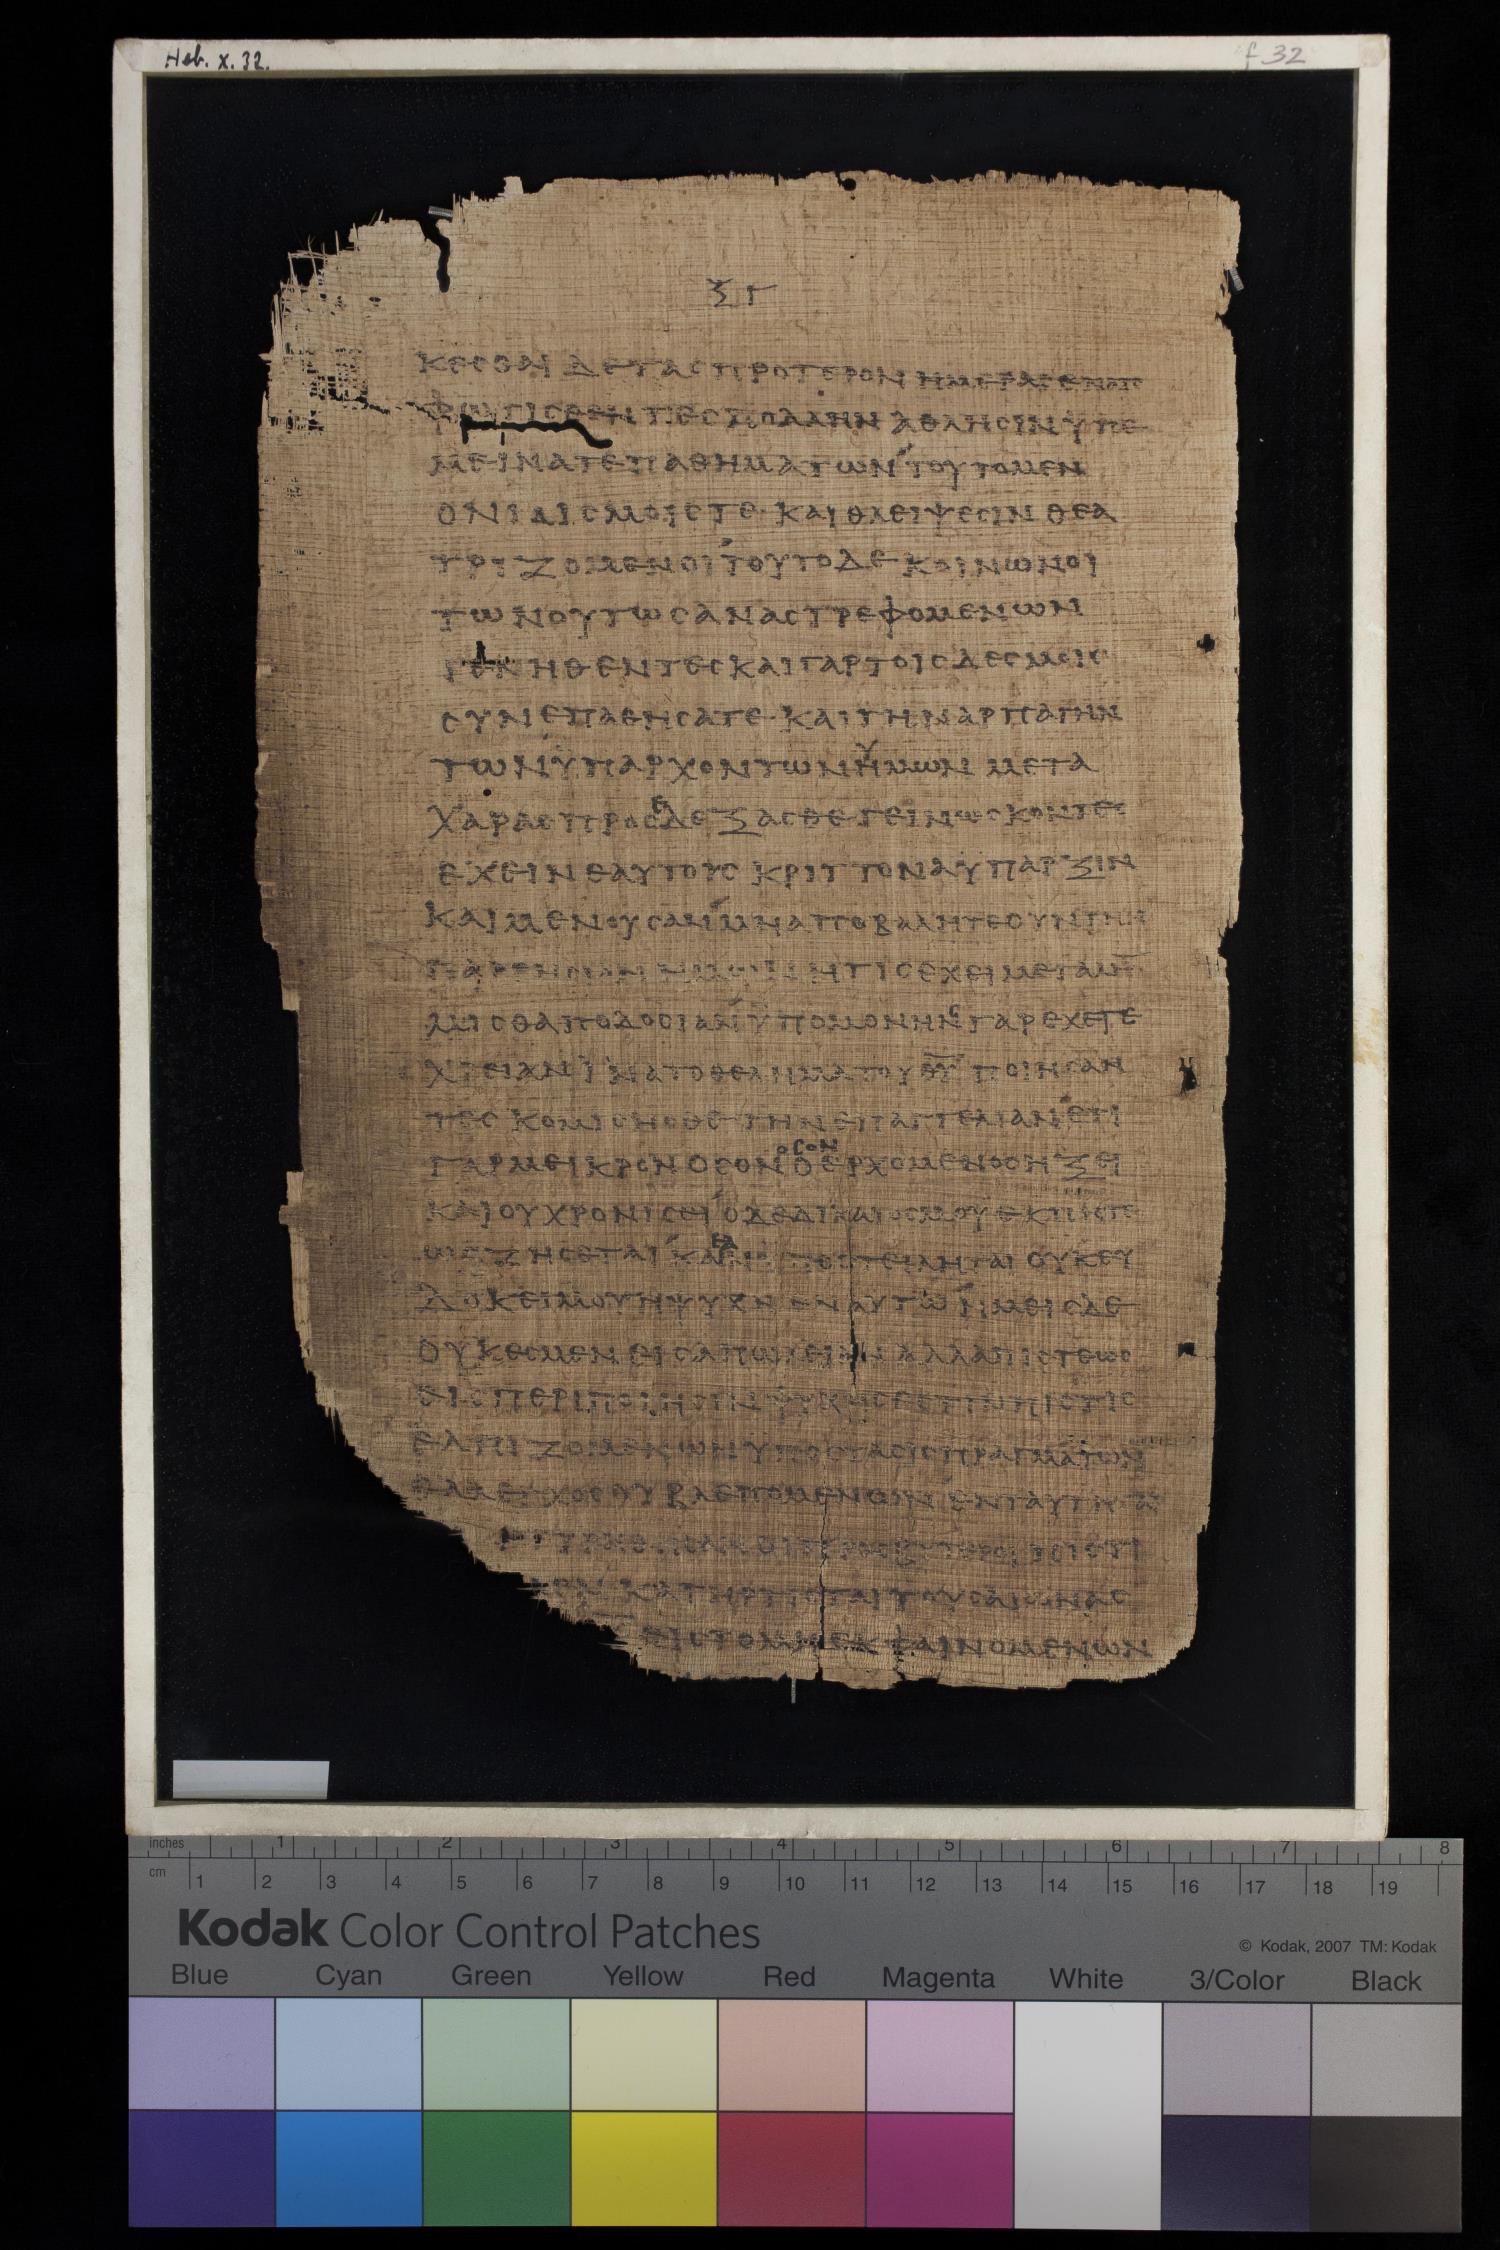 Heb. x. 32.
f 32
ξ γ
κεσθαι δε τας προτερον ημερας εν αις
φωτισθεντες πολλην αθλησιν ϋπε
μεινατε παθηματων τουτο μεν
ονιδισμοις τε και θλειψεσιν θεα
τριζομενοι τουτο δε κοινωνοι
των ουτως αναστρεφομενων
γενηθεντες και γαρ τοις δεσμοις
συνεπαθησατε και την αρπαγην
των ϋπαρχοντων ϋμων μετα
χαρας προσεδεξασθε γεινωσκοντες
εχειν εαυτους κριττονα ϋπαρξιν
και μενουσαν μη αποβαλητε ουν την
ητις εχει μεγαλην
μισθαποδοσιαν ϋπομονην γαρ εχετε
χρειαν ϊνα το θελημα του θυ ποιησαν
τες κομισησθε την επαγγελιαν ετι
γαρ μεικρον οσον οσον ο ερχομενος ηξει
και ου χρονισει ο δε δικαιος μου εκ πιστε
ως ζησεται και εαν ϋποστειληται ουκ ευ
δοκει μου η ψυχη εν αυτω ημεις δε
ουκ εσμεν εις απωλειαν αλλα πιστεως
εις περιποιησιν ψυχης εστιν πιστις
ελπιζομενων ϋποστασις πραγματων
ελεγχος ου βλεπομενων εν ταυτη
πιστι
κατηρτισται τους αιωνας
εις το μη εκ φαινομενων
inches 1 2 3 4 5 6 7 8
cm 1 2 3 4 5 6 7 8 9 10 11 12 13 14 15 16 17 18 19
Kodak Color Control Patches
© Kodak, 2007 TM: Kodak
Blue Cyan Green Yellow Red Magenta White 3/Color Black